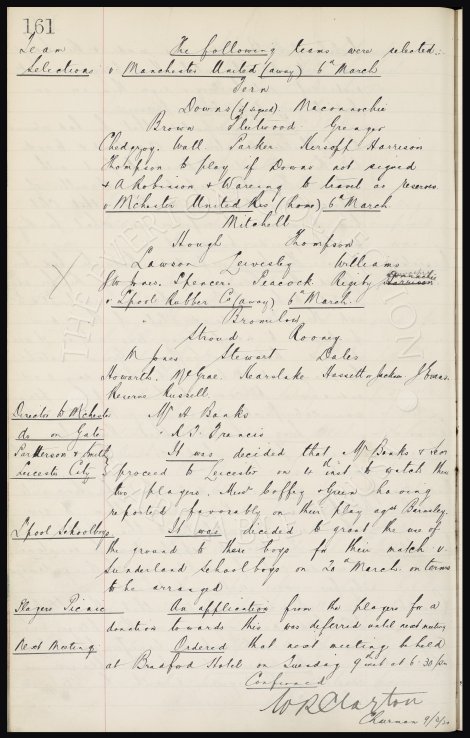 161
Team The following teams were selected:
Selections v Manchester United (away) 6th March
Fern
Downs (if signed) Maconnachie
Brown Fleetwood Grenyer
Chedgzoy. Wall Parker Kirsopp Harrison
Thompson to play if Downs not signed
& A Robinson & Wareing to travel as reserves
v M'chester United Res (home) 6th March
Mitchell
Hough Thompson
Lawson Leivesley Williams
Jones. Spencer. Peacock. Rigby Harrison
v L'pool Rubber Co (away) 6th March.
Bromilow
Stroud Rooney
M Jones Stewart Dales
Howorth. McGrae. Kearslake Hassett or Jackson J Evans.
Reserve Russell.
Director to M'chester Mr A Banks
do on Gate " R. T. Francis
Parkerson & Smith It was decided that Mr Banks & Sec
Leicester City proceed to Leicester on 4th inst to watch these
two players. Messrs Coffey & Green having
reported favorably on their play agst Barnsley.
L'pool Schoolboys It was decided to grant the use of
the ground to these boys for their match v.
Sunderland Schoolboys on 20th March. on terms
to be arranged
Players Picnic An application from the players for a
donation towards this was deferred until next meeting
Next Meeting Ordered that next meeting be held
at Bradford Hotel on Tuesday 9th inst at 6.30 pm
Confirmed
W R Clayton
Chairman 9/3/20